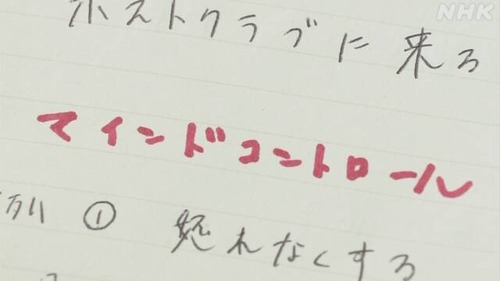 NHK
ホストクラブに来る
マインドコントロール
例 ① 怒れなくする